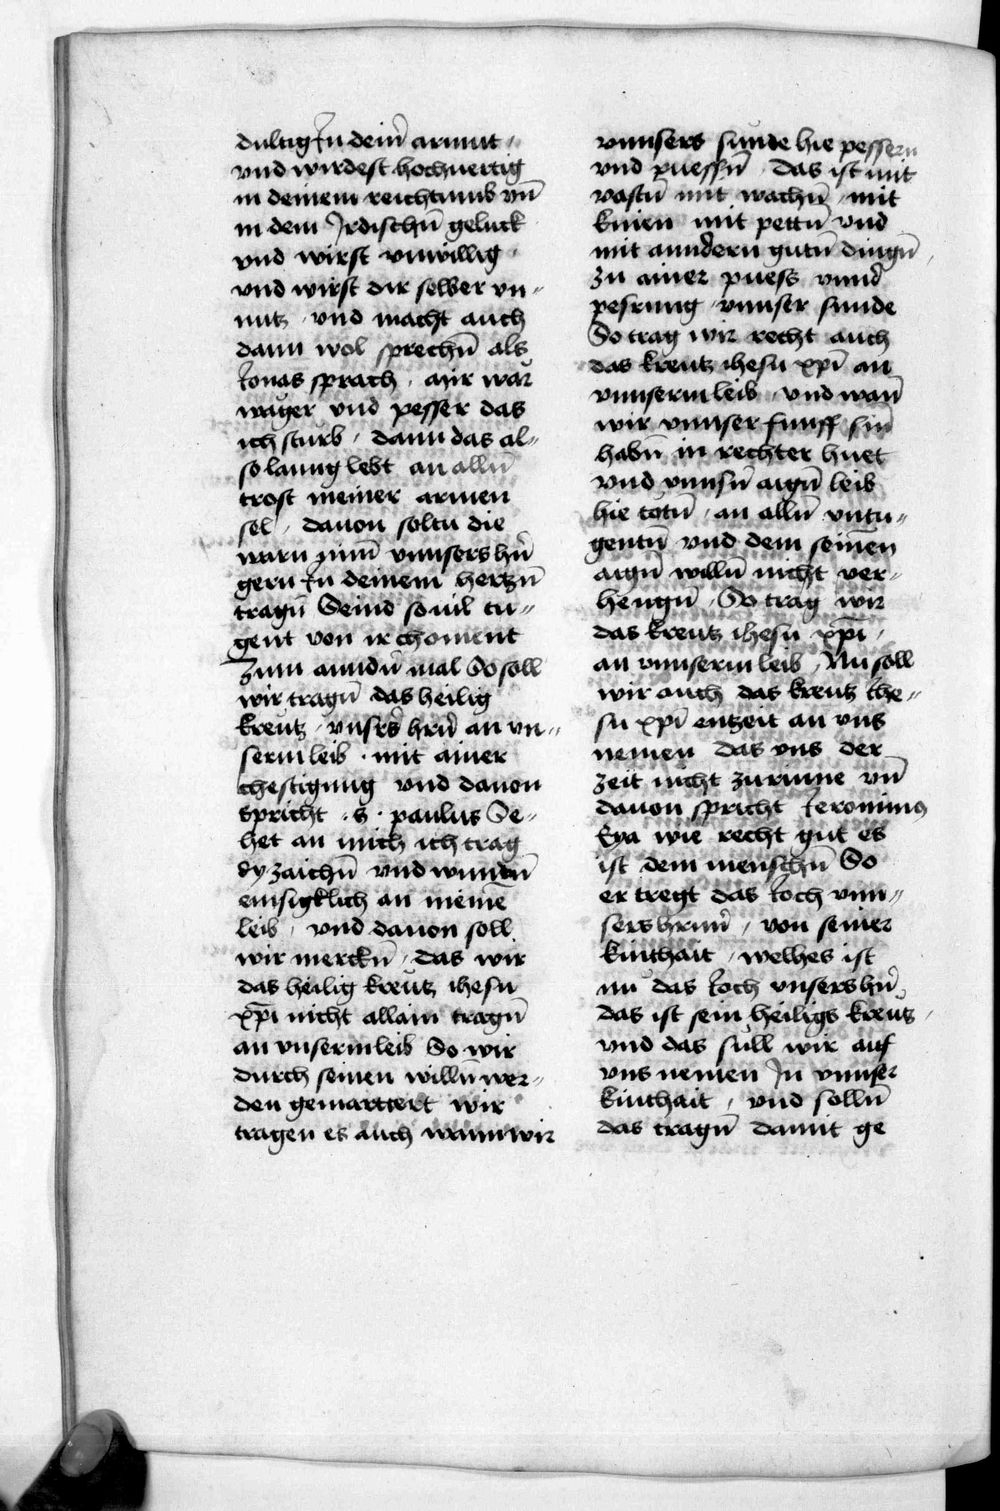 dultig In dein̄ armut ⸗
vnd wirdest hochuertig
in deinem reichtumb vn̄
in dem Irdischn̄ geluck
vnd wirst vnwillig ·
vnd wirst dir selber vn⸗
nutz · vnd macht auch
dann wol sprechn̄ als
Ionas sprach · mir war
wager vnd pesser das
ich sturb · dann das al⸗
so lanng lebt an alln̄
trost meiner armen
sel · dauon soltu die
warn mīn̄ vnnsers hn̄
gern In deinem hertzn̄
tragn̄ Seind souil tu⸗
gent von ir choment
Zum anndn̄ mal So soll
wir tragn̄ das heilig
kreutz · vnsrs hrn̄ an vn⸗
serm leib · mit ainer
chestigung vnd dauon
spricht · S · paulus Se⸗
het an mich ich trag
dy zaichn̄ vnd wundn̄
emsigklich an meinē
leib · vnd dauon soll
wir merckn̄ · das wir
das heilig kreutz ihesu
xp̄i nicht allain tragn̄
an vnserm leib So wir
durch seinen willn̄ wer⸗
den gemarttert wir
tragen es auch wann wir
vnnsers sunde hie pessern
vnd puessn̄ · das ist mit
vastn̄ mit wachn̄ · mit
knien mit pettn̄ vnd
mit anndern gutn̄ dingn̄ ·
zu ainer puess vnnd
pesrung · vnnser sunde
So trag wir recht auch
das kreutz ihesu xp̄i an
vnnserm leib · vnd wan̄
wir vnnser funff sin̄
habn̄ in rechter huet
vnd vnnsn̄ aign̄ leib
hie totn̄ · an alln̄ vntu⸗
gentn̄ vnd dem seinen
aign̄ willn̄ nicht ver⸗
hengn̄ · So trag wir
das kreutz ihesu xp̄i ·
an vnnserm leib · Nu soll
wir auch das kreutz Ihe⸗
su xp̄i entzeit an vns
nemen das vns der
zeit nicht zurinne vn̄
dauon spricht Ieronimus
Eya wie recht gut es
ist dem menschn̄ So
er tregt das Ioch vnn⸗
sers hrnn̄ · von seiner
kinthait · welhes ist
nu das Ioch vnsers hn̄
das ist sein heiligs kreutz ·
vnd das sull wir auf
vns nemen In vnnser
kinthait · vnd solln̄
das tragn̄ damit ge